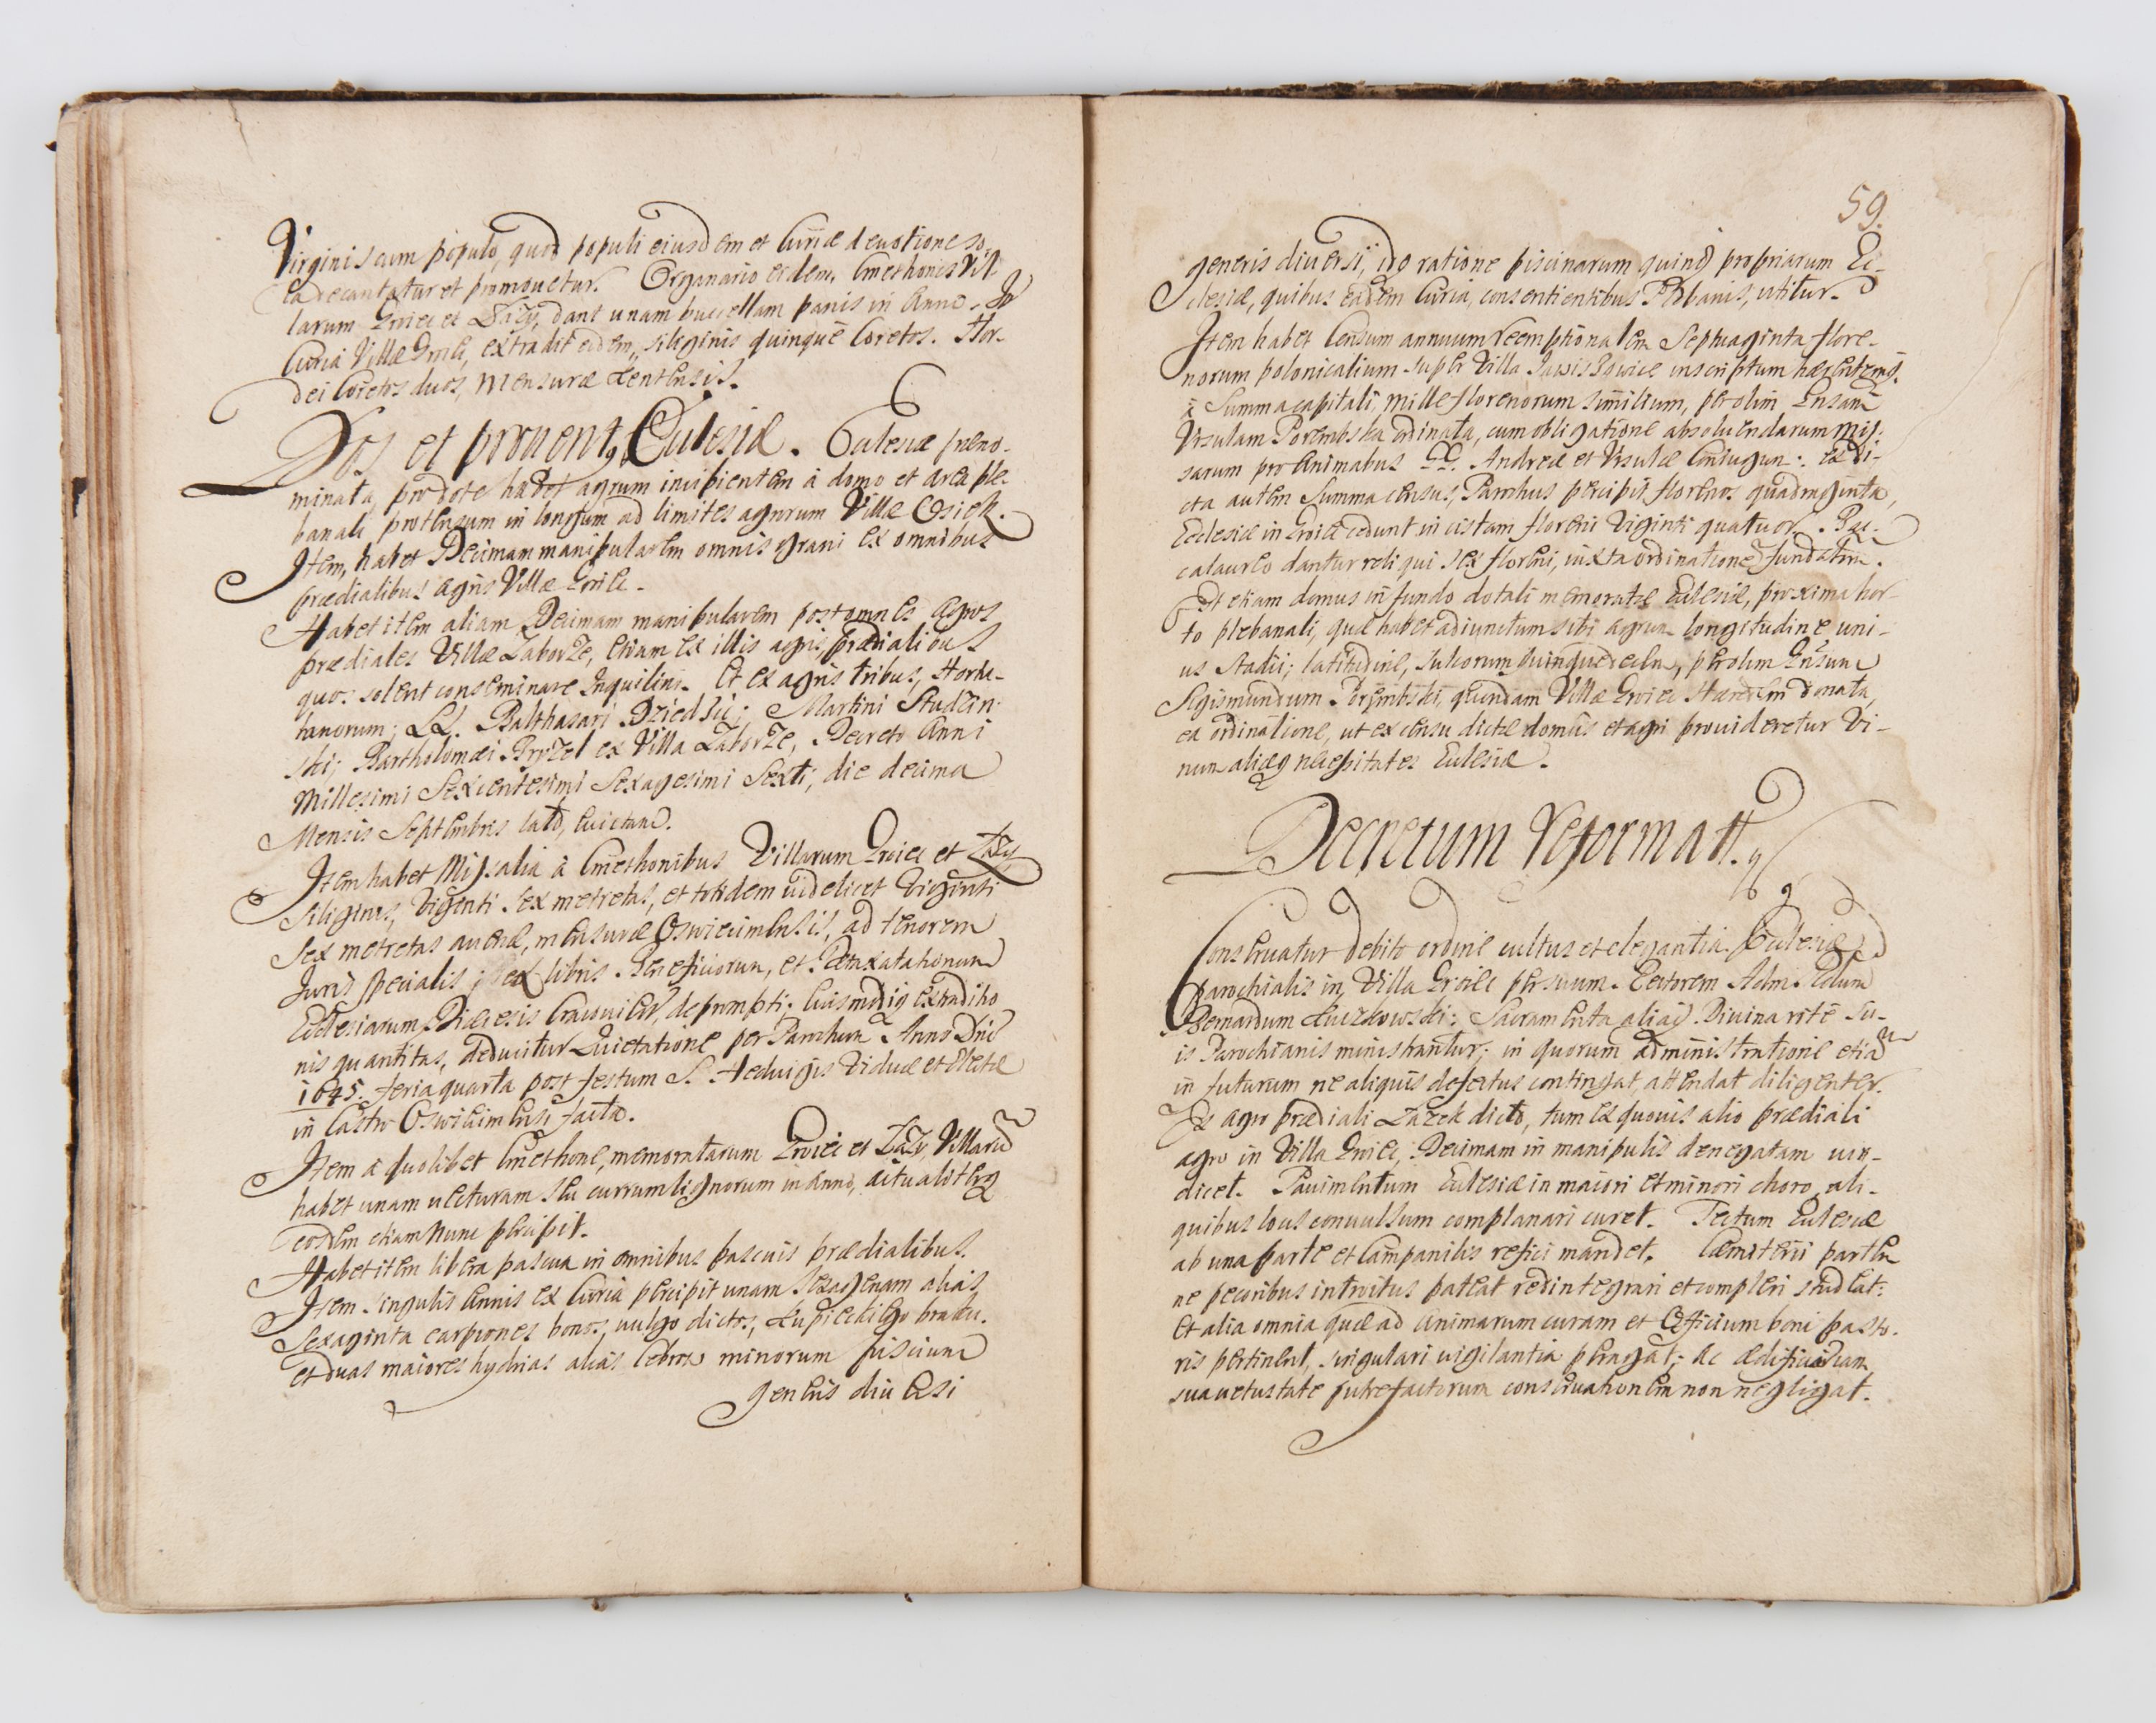 Virginis cum populo, quod populi eiusdem et Curiæ deuotione so-
la decantatur et promouetur. Organario eidem, Cmethones Vil-
larum Groiec et Zazy, dant unam buccellam panis in Anno. Ex
Curia Villæ Groiec, extradit eidem, siliginis quinque Coretos. Hor-
dei Coretos duos, Mensuræ Zentensis.
Dos et prouent9 Ecclesiæ. Ecclesia præno-
minata, pro dote habet agrum incipientem à domo et area ple-
banali protensum in longum ad limites agrorum Villæ Osiek.
Item, habet Decimam manipularem omnis grani ex omnibus
prædialibus agris Villæ Groiec.
Habet item aliam Decimam manipularem post omnes Agros
prædiales Villæ Zaborze, etiam ex illis agris prædialibus
quos solent conseminare Inquilini. Et ex agris tribus, Hortu-
lanorum; LL. Balthasari Dziedzic; Martini Studzin-
ski; Bartholomæi Pryzel ex Villa Zaborze, Decreto Anni
Millesimi Sexcentesimi Sexagesimi Sexti; die decima
Mensis Septembris lato, euictam.
Item habet Missalia à Cmethonibus Villarum Groiec et Zazy
Siliginis, Viginti sex metretas, et totidem uidelicet Viginti
sex metretas auenæ, mensuræ Oswiecimensis, ad tenorem
Juris specialis; ex libris Beneficiorum, et Taxatationum
Ecclesiarum Diæcesis Cracouien, deprompti. Cuismodi extraditio
nis quantitas, deducitur Quietatione per Parochum Anno Dni
1645. feria quarta post festum S. Heduigis Viduæ et Electæ
in Castro Oswiecimensi facta.
Item à quolibet Cmethone, memoratarum Groiec et Zazy Villarū
habet unam uecturam seu currum lignorum in Anno, actualiterq
eosdem etiam nunc percipit.
Habet item libera pascua in omnibus pascuis prædialibus.
Item singulis Annis ex Curia percipit unam sexagenam alias
sexaginta carpiones bonos, uulgo dictos, Łupieckiego braku.
et duas maiores hydrias alias Cebrow minorum piscium
generis diuersi
59.
generis diuersi, idq ratione piscinarum quinq propriarum Ec-
clesiæ, quibus eadem Curia, consentientibus Plebanis, utitur.
Item habet Censum annuum reemptionalem Septuaginta flore-
norum polonicalium super Villa inscriptum hærentemq.
in Summa capitali, mille florenorum similium, per olim Gnsam
Vrsulam Porembska ordinata, cum obligatione absoluendarum mis-
sarum pro Animabus GG. Andreæ et Vrsulæ Coniugum. Ex di-
cta autem Summa census, Parochus percipit florenos quadraginta,
Ecclesiæ in Groiec cedunt in cistam floreni Viginti quatuor. Bac-
calaureo dantur reliqui sex floreni, iuxta ordinatione fundatm.
Est etiam domus in fundo dotali memoratæ Ecclesiæ, proxima hor-
to plebanali, quæ habet adiunctum sibi agrum longitudine uni-
us stadii; latitudine, sulcorum quinquedecim, per olim Gnsum
Sigismundum Porembski, quondam Villæ Groiec Hæredem donata,
ea ordinatione, ut ex censu dictæ domus et agri prouideretur Vi-
num aliæq necessitates Ecclesiæ.
Decretum reformatt.
Conseruatur debito ordine cultus et elegantia Ecclesiæ
parochialis in Villa Groiec per suum Rectorem Adm. Rdum
Bernardum Łuczkowski: Sacramenta aliaq Diuina ritè su-
is Parochianis ministrantur; in quorum administratione etiam
in futurum ne aliquis defectus contingat, attendat diligenter.
Ex agro prædiali Lazek dicto, tum ex quouis alio prædiali
agro in Villa Groiec, Decimam in manipulis denegatam uin-
dicet. Pauimentum Ecclesiæ in maiori et minori choro, ali-
quibus locis conuulsum complanari curet. Tectum Ecclesiæ
ab una parte et Campanilis refici mandet. Cæmiterii partem
ne pecoribus introitus pateat redintegrari et compleri studeat:
Et alia omnia quæ ad Animarum curam et Officium boni pasto-
ris pertinent, singulari uigilantia peragat; ac ædificiorum
sua uetustate putrefactorum conseruationem non negligat.